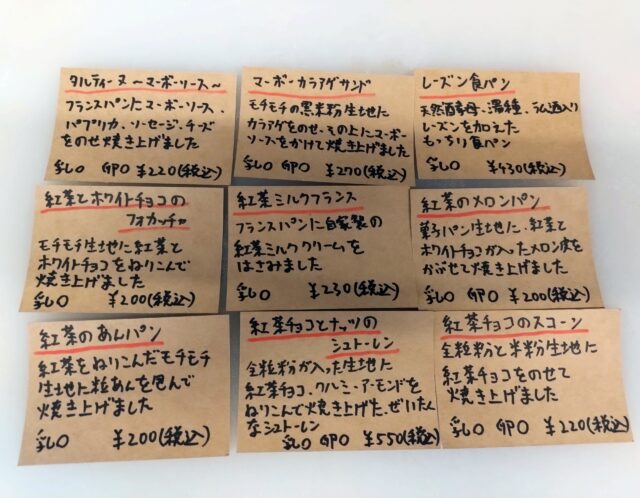 タルティーヌ〜マーボーソース〜
フランスパンにマーボーソース、
パプリカ、ソーセージ、チーズ
をのせ焼き上げました
乳○ GP○ ¥220(税込)
マーボーカラアゲサンド
モチモチの黒米粉生地に
カラアゲをのせ、その上にマーボー
ソースをかけて焼き上げました
乳○ GP○ ¥270(税込)
レーズン食パン
天然酵母、湯種、ラム酒入り
レーズンを加えた
もっちり食パン
乳○ ¥430(税込)
紅茶とホワイトチョコの
フォカッチャ
モチモチ生地に紅茶と
ホワイトチョコをねりこんで
焼き上げました
乳○ ¥200(税込)
紅茶ミルクフランス
フランスパンに自家製の
紅茶ミルククリームを
はさみました
乳○ ¥230(税込)
紅茶のメロンパン
菓子パン生地に、紅茶と
ホワイトチョコが入ったメロン皮を
かぶせて焼き上げました
乳○ GP○ ¥200(税込)
紅茶のあんパン
紅茶をねりこんだモチモチ
生地に粒あんを包んで
焼き上げました
乳○ ¥200(税込)
紅茶チョコとナッツの
シュトーレン
全粒粉が入った生地に
紅茶チョコ、クルミ・アーモンドを
ねりこんで焼き上げた、ぜいたく
なシュトーレン
乳○ GP○ ¥550(税込)
紅茶チョコのスコーン
全粒粉と米粉生地に
紅茶チョコをのせて
焼き上げました
乳○ GP○ ¥220(税込)